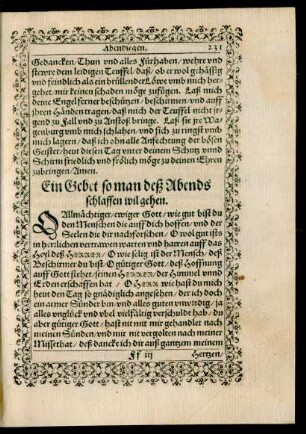 Abendsegen. 231
Gedancken/ Thun vnd alles Fürhaben/ wehre vnd
stewre dem leidigen Teuffel/ daß/ ob er wol gehässig
vnd feindlich als ein brüllender Löwe vmb mich her
gehet/ mir keinen schaden möge zufügen. Laß mich
deine Engel ferner beschützen/ beschirmen/ vnd auff
jhren Händen tragen/ daß mich der Teuffel nicht jr-
gend zu Fall vnd zu Anstoß bringe. Laß sie jre Wa-
genburg vmb mich schlahen/ vnd sich zu ringst vmb
mich lägern/ daß ich ohn alle Anfechtung der bösen
Geister/ heut diesen Tag vnter deinen Schutz vnd
Schirm friedlich vnd frölich möge zu deinen Ehren
zubringen/ Amen.
Ein Gebet so man deß Abends
schlaffen wil gehen.
O Allmächtiger/ ewiger Gott/ wie gut bist du
den Menschen die auff dich hoffen/ vnd der
Seelen die dir nachforschen/ O wol gut ists
in hertzlichen vertrawen warten vnd harren auff das
Heyl deß HERREN/ O wie selig ist der Mensch/ deß
Beschirmer du bist. O gütiger Gott/ deß Hoffnung
auff Gott stehet/ seinen HERREN/ der Himmel vnnd
Erden erschaffen hat/ O HERR wie hast du mich
heut den Tag so gnädiglich angesehen/ der ich doch
ein armer Sünder bin vnd alles guten vnwirdig/ ja
alles vnglück vnd vbel vielfältig verschuldt hab/ du
aber gütiger Gott/ hast nit mit mir gehandlet nach
meinen Sünden/ vnd mir nit vergolten nach meiner
Missethat/ deß dancke ich dir auß gantzem meinem
Ff iij Hertzen/